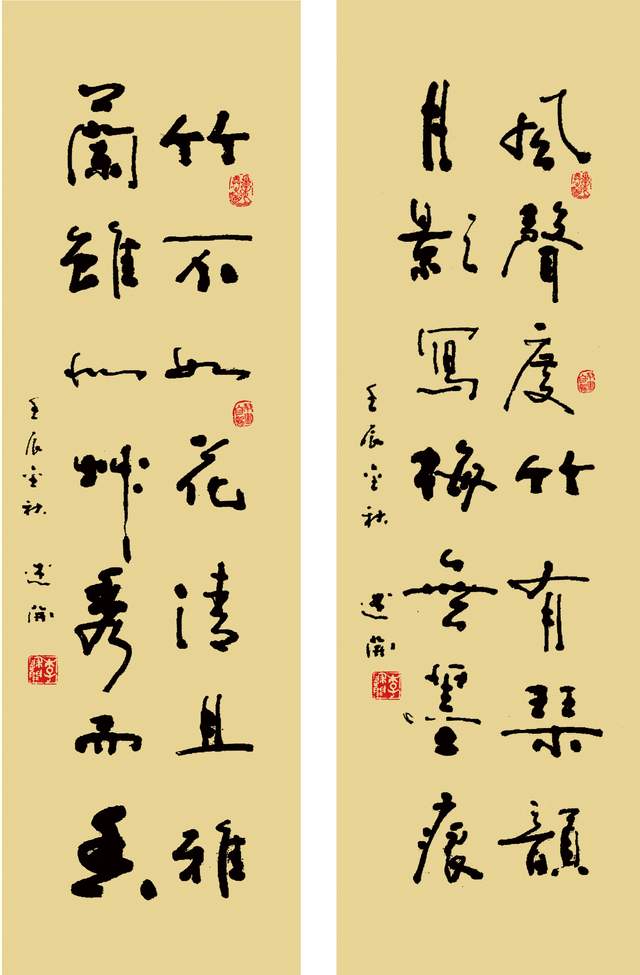 風聲度竹有琴韻
月影寫梅無墨痕
壬辰金秋
竹不如花清且雅
蘭雖似艸秀而香
壬辰金秋